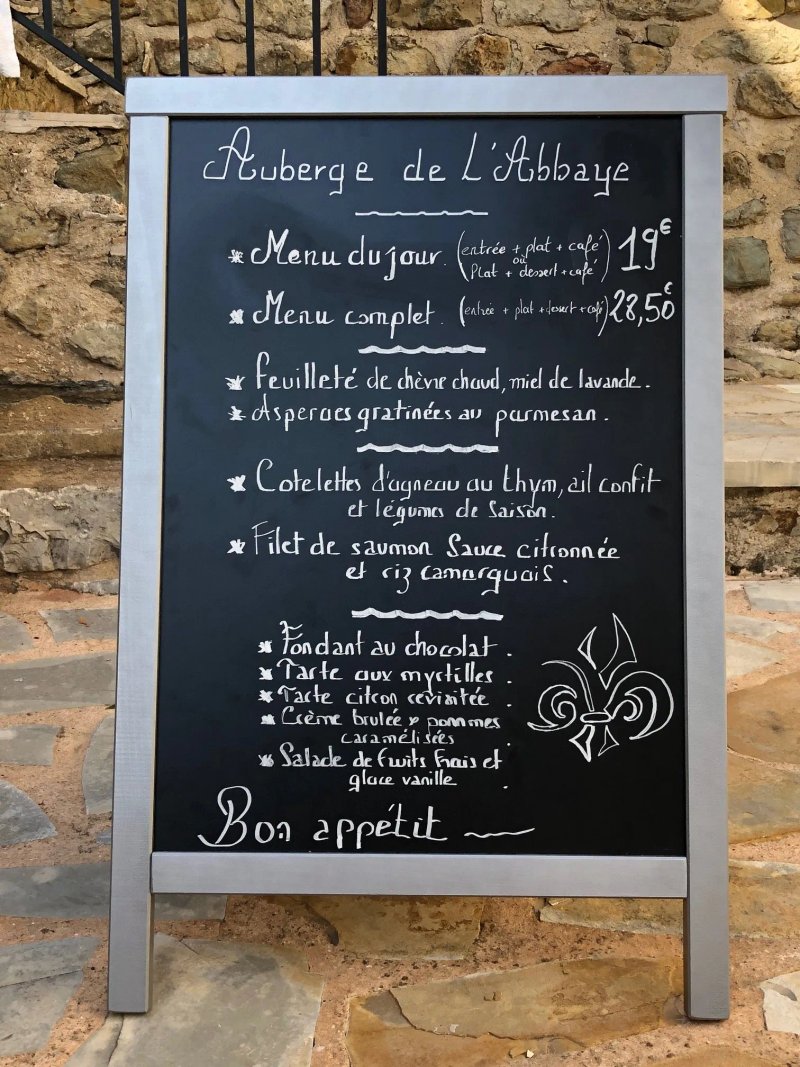 Auberge de L'Abbaye
* Menu du jour. (entrée + plat + café) 19€
où
Plat + dessert + café)
* Menu complet. (entrée + plat + dessert + café) 28,50€
* Feuilleté de chèvre chaud, miel de lavande.
* Asperges gratinées au parmesan.
* Cotelettes d'agneau au thym, ail confit
et légumes de Saison.
* Filet de saumon Sauce citronnée
et riz camarguais.
* Fondant au chocolat.
* Tarte aux myrtilles.
* Tarte citron revisitée.
* Crème brulée & pommes
caramélisées.
* Salade de fruits frais et
glace vanille.
Bon appétit